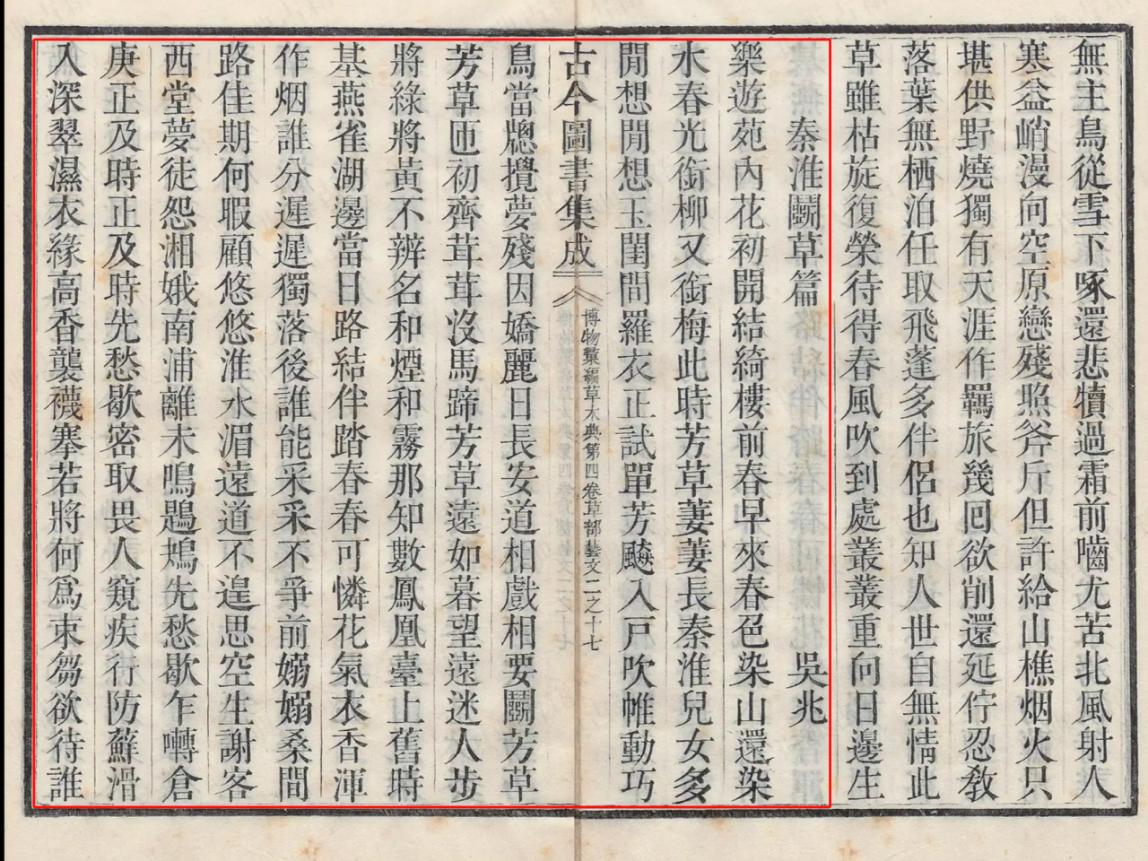 無主鳥從雪下啄還悲犢過霜前嚙尤苦北風射人
寒益峭漫向空原戀殘照斧斤但許給山樵烟火只
堪供野燒獨有天涯作羈旅幾囘欲削還延佇忍敎
落葉無栖泊任取飛蓬多伴侶也知人世自無情此
草雖枯旋復榮待得春風吹到處叢叢重向日邊生
秦淮鬭草篇 吳兆
樂遊苑內花初開結綺樓前春早來春色染山還染
水春光銜柳又銜梅此時芳草萋萋長秦淮兒女多
閒想閒想玉閨間羅衣正試單芳飈入戸吹帷動巧
古今圖書集成 博物彙編草木典第四卷草部藝文二之十七
鳥當牕攪夢殘因嬌麗日長安道相戲相要鬭芳草
芳草匝初齊茸茸沒馬蹄芳草遠如暮望遠迷人步
將綠將黃不辨名和煙和霧那知數鳳凰臺上舊時
基燕雀湖邊當日路結伴踏春春可憐花氣衣香渾
作烟誰分遲遲獨落後誰能采采不爭前嫋嫋桑間
路佳期何暇顧悠悠淮水湄遠道不遑思空生謝客
西堂夢徒怨湘娥南浦離未鳴鶗鴂先愁歇乍囀倉
庚正及時正及時先愁歇密取畏人窺疾行防蘚滑
入深翠濕衣緣高香襲襪搴若將何爲束芻欲待誰